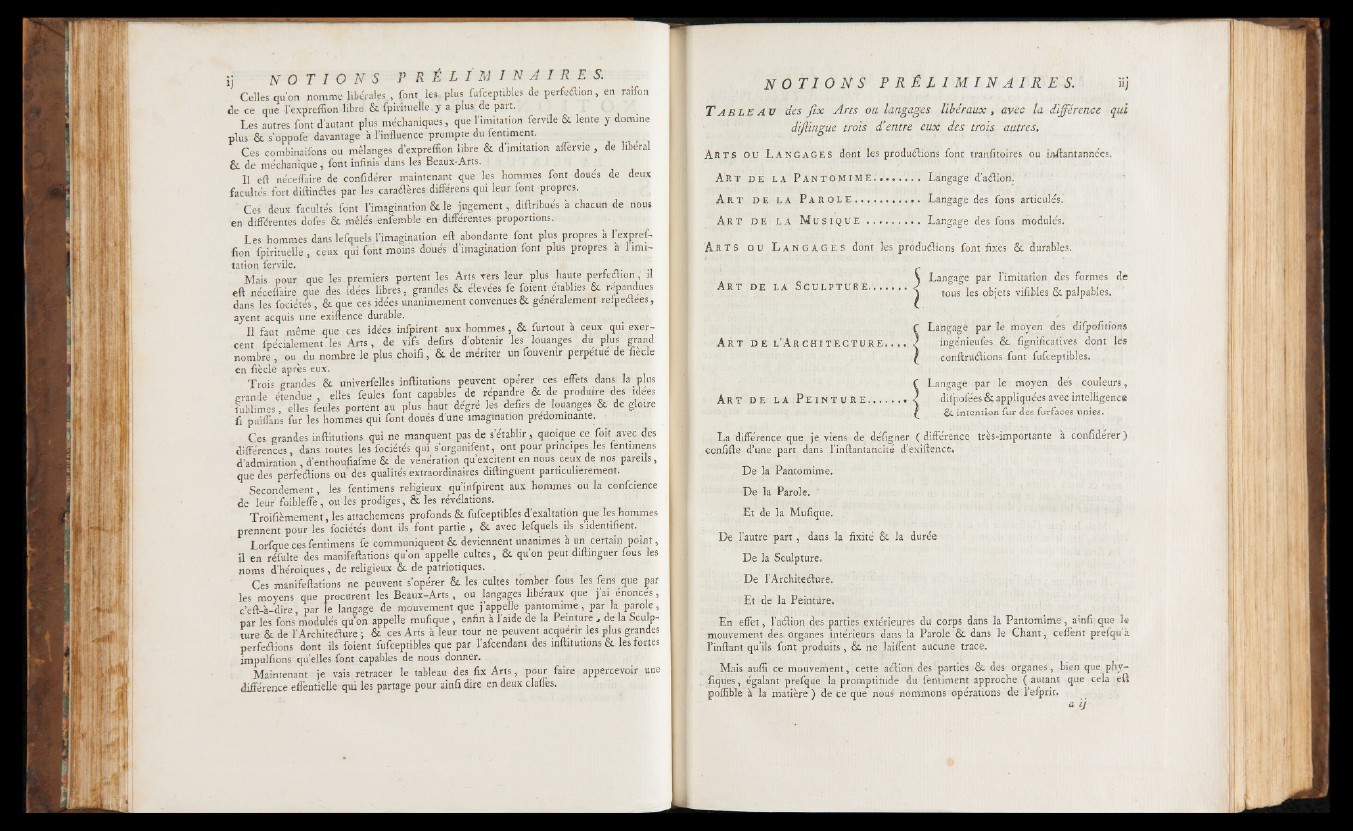 ij NOTIONS PRÉLIMINAIRES.
Celles qu'on nomme libérales, ſont les plus ſuſceptibles de perfection, en raiſon
de ce que l'expreſſion libre & ſpirituelle y a plus de part.
Les autres ſont d'autant plus méchaniques, que l'imitation ſervile & lente y domine
plus & s'oppoſe davantage à l'influence prompte du ſentiment.
Ces combinaiſons ou mêlanges d'expreſſion libre & d'imitation aſſervie, de libéral
& de méchanique, ſont infinis dans les Beaux-Arts.
Il eſt néceſſaire de conſidérer maintenant que les hommes ſont doués de deux
facultés fort diſtinctes par les caractères différens qui leur ſont propres.
Ces deux facultés ſont l'imagination & le jugement, diſtribués à chacun de nous
en différentes doſes & mêlés enſemble en différentes proportions.
Les hommes dans leſquels l'imagination eſt abondante ſont plus propres à l'expreſ-
ſion ſpirituelle, ceux qui ſont moins doués d'imagination ſont plus propres à l'imi-
tation ſervile.
Mais pour que les premiers portent les Arts vers leur plus haute perfection, il
eſt néceſſaire que des idées libres, grandes & élevées ſe ſoient établies & répandues
dans les ſociétés, & que ces idées unanimement convenues & généralement reſpectées,
ayent acquis une exiſtence durable.
Il faut même que ces idées inſpirent aux hommes, & ſurtout à ceux qui exer-
cent ſpécialement les Arts, de vifs deſirs d'obtenir les louanges du plus grand
nombre, ou du nombre le plus choiſi, & de mériter un ſouvenir perpétué de ſiècle
en ſiècle après eux.
Trois grandes & univerſelles inſtitutions peuvent opérer ces effets dans la plus
grande étendue, elles ſeules ſont capables de répandre & de produire des idées
ſublimes, elles ſeules portent au plus haut dégré les deſirs de louanges & de gloire
ſi puiſſans ſur les hommes qui ſont doués d'une imagination prédominante.
Ces grandes inſtitutions qui ne manquent pas de s'établir, quoique ce ſoit avec des
différences, dans toutes les ſociétés qui s'organiſent, ont pour principes les ſentimens
d'admiration, d'enthouſiaſme & de vénération qu'excitent en nous ceux de nos pareils,
que des perfections ou des qualités extraordinaires diſtinguent particulierement.
Secondement, les ſentimens religieux qu'inſpirent aux hommes ou la conſcience
de leur foibleſſe, ou les prodiges, & les révélations.
Troiſièmement, les attachemens profonds & ſuſceptibles d'exaltation que les hommes
prennent pour les ſociétés dont ils font partie, & avec leſquels ils s'identifient.
Lorſque ces ſentimens ſe communiquent & deviennent unanimes à un certain point,
il en réſulte des manifeſtations qu'on appelle cultes, & qu'on peut diſtinguer ſous les
noms d'héroïques, de religieux & de patriotiques.
Ces manifeſtations ne peuvent s'opérer & les cultes tomber ſous les ſens que par
les moyens que procurent les Beaux-Arts, ou langages libéraux que j'ai énoncés,
c'eſt-à-dire, par le langage de mouvement que j'appelle pantomime, par la parole,
par les ſons modulés qu'on appelle muſique, enfin à l'aide de la Peinture, de la Sculp-
ture & de l'Architecture; & ces Arts à leur tour ne peuvent acquérir les plus grandes
perfections dont ils ſoient ſuſceptibles que par l'aſcendant des inſtitutions & les fortes
impulſions qu'elles ſont capables de nous donner.
Maintenant je vais retracer le tableau des ſix Arts, pour faire appercevoir une
différence eſſentielle qui les partage pour ainſi dire en deux claſſes.
NOTIONS PRÉLIMINAIRES. iij
TABLEAU des ſix Arts ou langages libéraux, avec la différence qui
diſtingue trois d'entre eux des trois autres.
ARTS OU LANGAGES dont les productions ſont tranſitoires ou inſtantannées.
ART DE LA PANTOMIME........ Langage d'action.
ART DE LA PAROLE........... Langage des ſons articulés.
ART DE LA MUSIQUE ......... Langage des ſons modulés.
ARTS OU LANGAGES dont les productions ſont fixes & durables.
ART DE LA SCULPTURE....... { Langage par l'imitation des formes de
tous les objets viſibles & palpables.
ART DE L'ARCHITECTURE.... { Langage par le moyen des diſpoſitions
ingénieuſes & ſignificatives dont les
conſtructions ſont ſuſceptibles.
ART DE LA PEINTURE....... { Langage par le moyen des couleurs,
diſpoſées & appliquées avec intelligence
& intention ſur des ſurfaces unies.
La différence que je viens de déſigner (différence très-importante à conſidérer)
conſiſte d'une part dans l'inſtantancité d'exiſtence.
De la Pantomime.
De la Parole.
Et de la Muſique.
De l'autre part, dans la fixité & la durée
De la Sculpture.
De l'Architecture.
Et de la Peinture.
En effet, l'action des parties extérieures du corps dans la Pantomime, ainſi que le
mouvement des organes intérieurs dans la Parole & dans le Chant, ceſſent preſqu'à
l'inſtant qu'ils ſont produits, & ne laiſſent aucune trace.
Mais auſſi ce mouvement, cette action des parties & des organes, bien que phy-
ſiques, égalant preſque la promptitude du ſentiment approche (autant que cela eſt
poſſible à la matière) de ce que nous nommons opérations de l'eſprit.
a ij